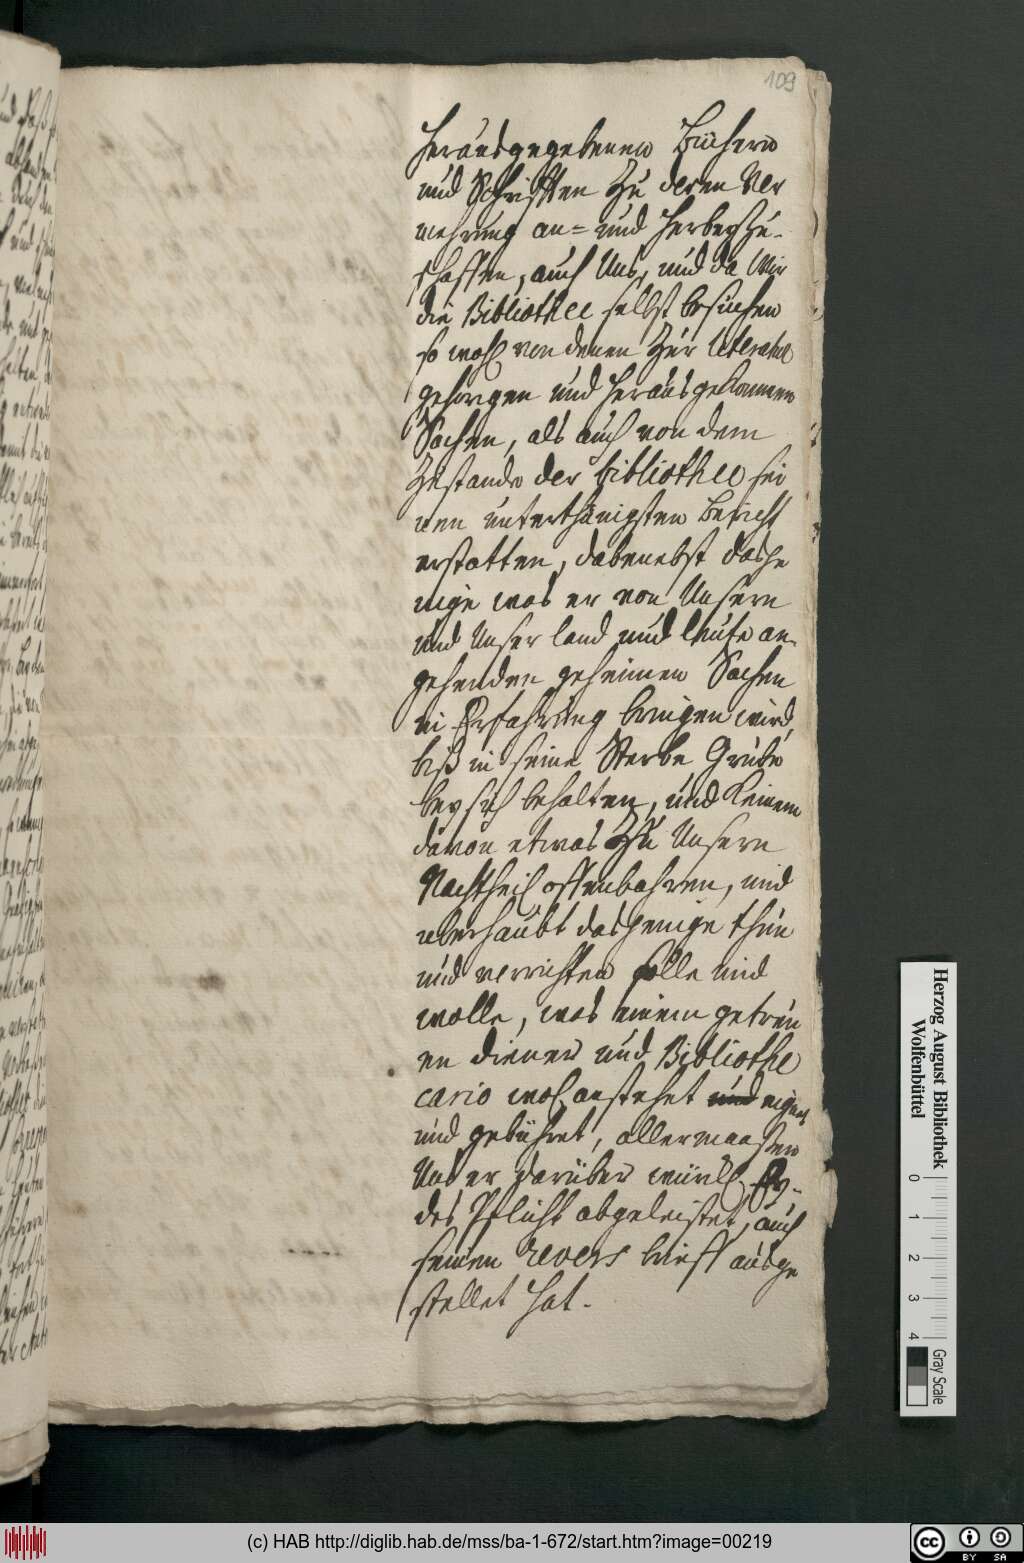 109
herausgegebenen Büchern
und Schrifften zu deren Ver
mehrung an= und herbeyzu-
schaffen, auch Uns, und da Wir
die Bibliothec selbst besuchen
so wohl von denen zur literatur
gehörigen und herausgekommenen
Sachen, als auch von dem
Zustande der bibliothec sei
nen unterthänigsten Bericht
erstatten, dabenebst dasje
nige was er von Unsern
und Unser land und leute an-
gehenden geheimen Sachen
in Erfahrung bringen wird,
biß in seine Sterbe Grube
bey sich behalten, und keinem
davon etwas zu Unsern
Nachtheil offenbahren, und
überhaubt dasjenige thun
und verrichten solle und
wolle, was einem getreu
en diener und Bibliothe
cario wohl anstehet und eignet
und gebühret, allermaaßen
Uns er darüber würkl. Ey-
des Pflicht abgeleistet, auch
seinen revers brieff ausge
stellet hat.
Herzog August Bibliothek
Wolfenbüttel
0 1 2 3 4
Gray Scale
(c) HAB http://diglib.hab.de/mss/ba-1-672/start.htm?image=00219
cc BY SA